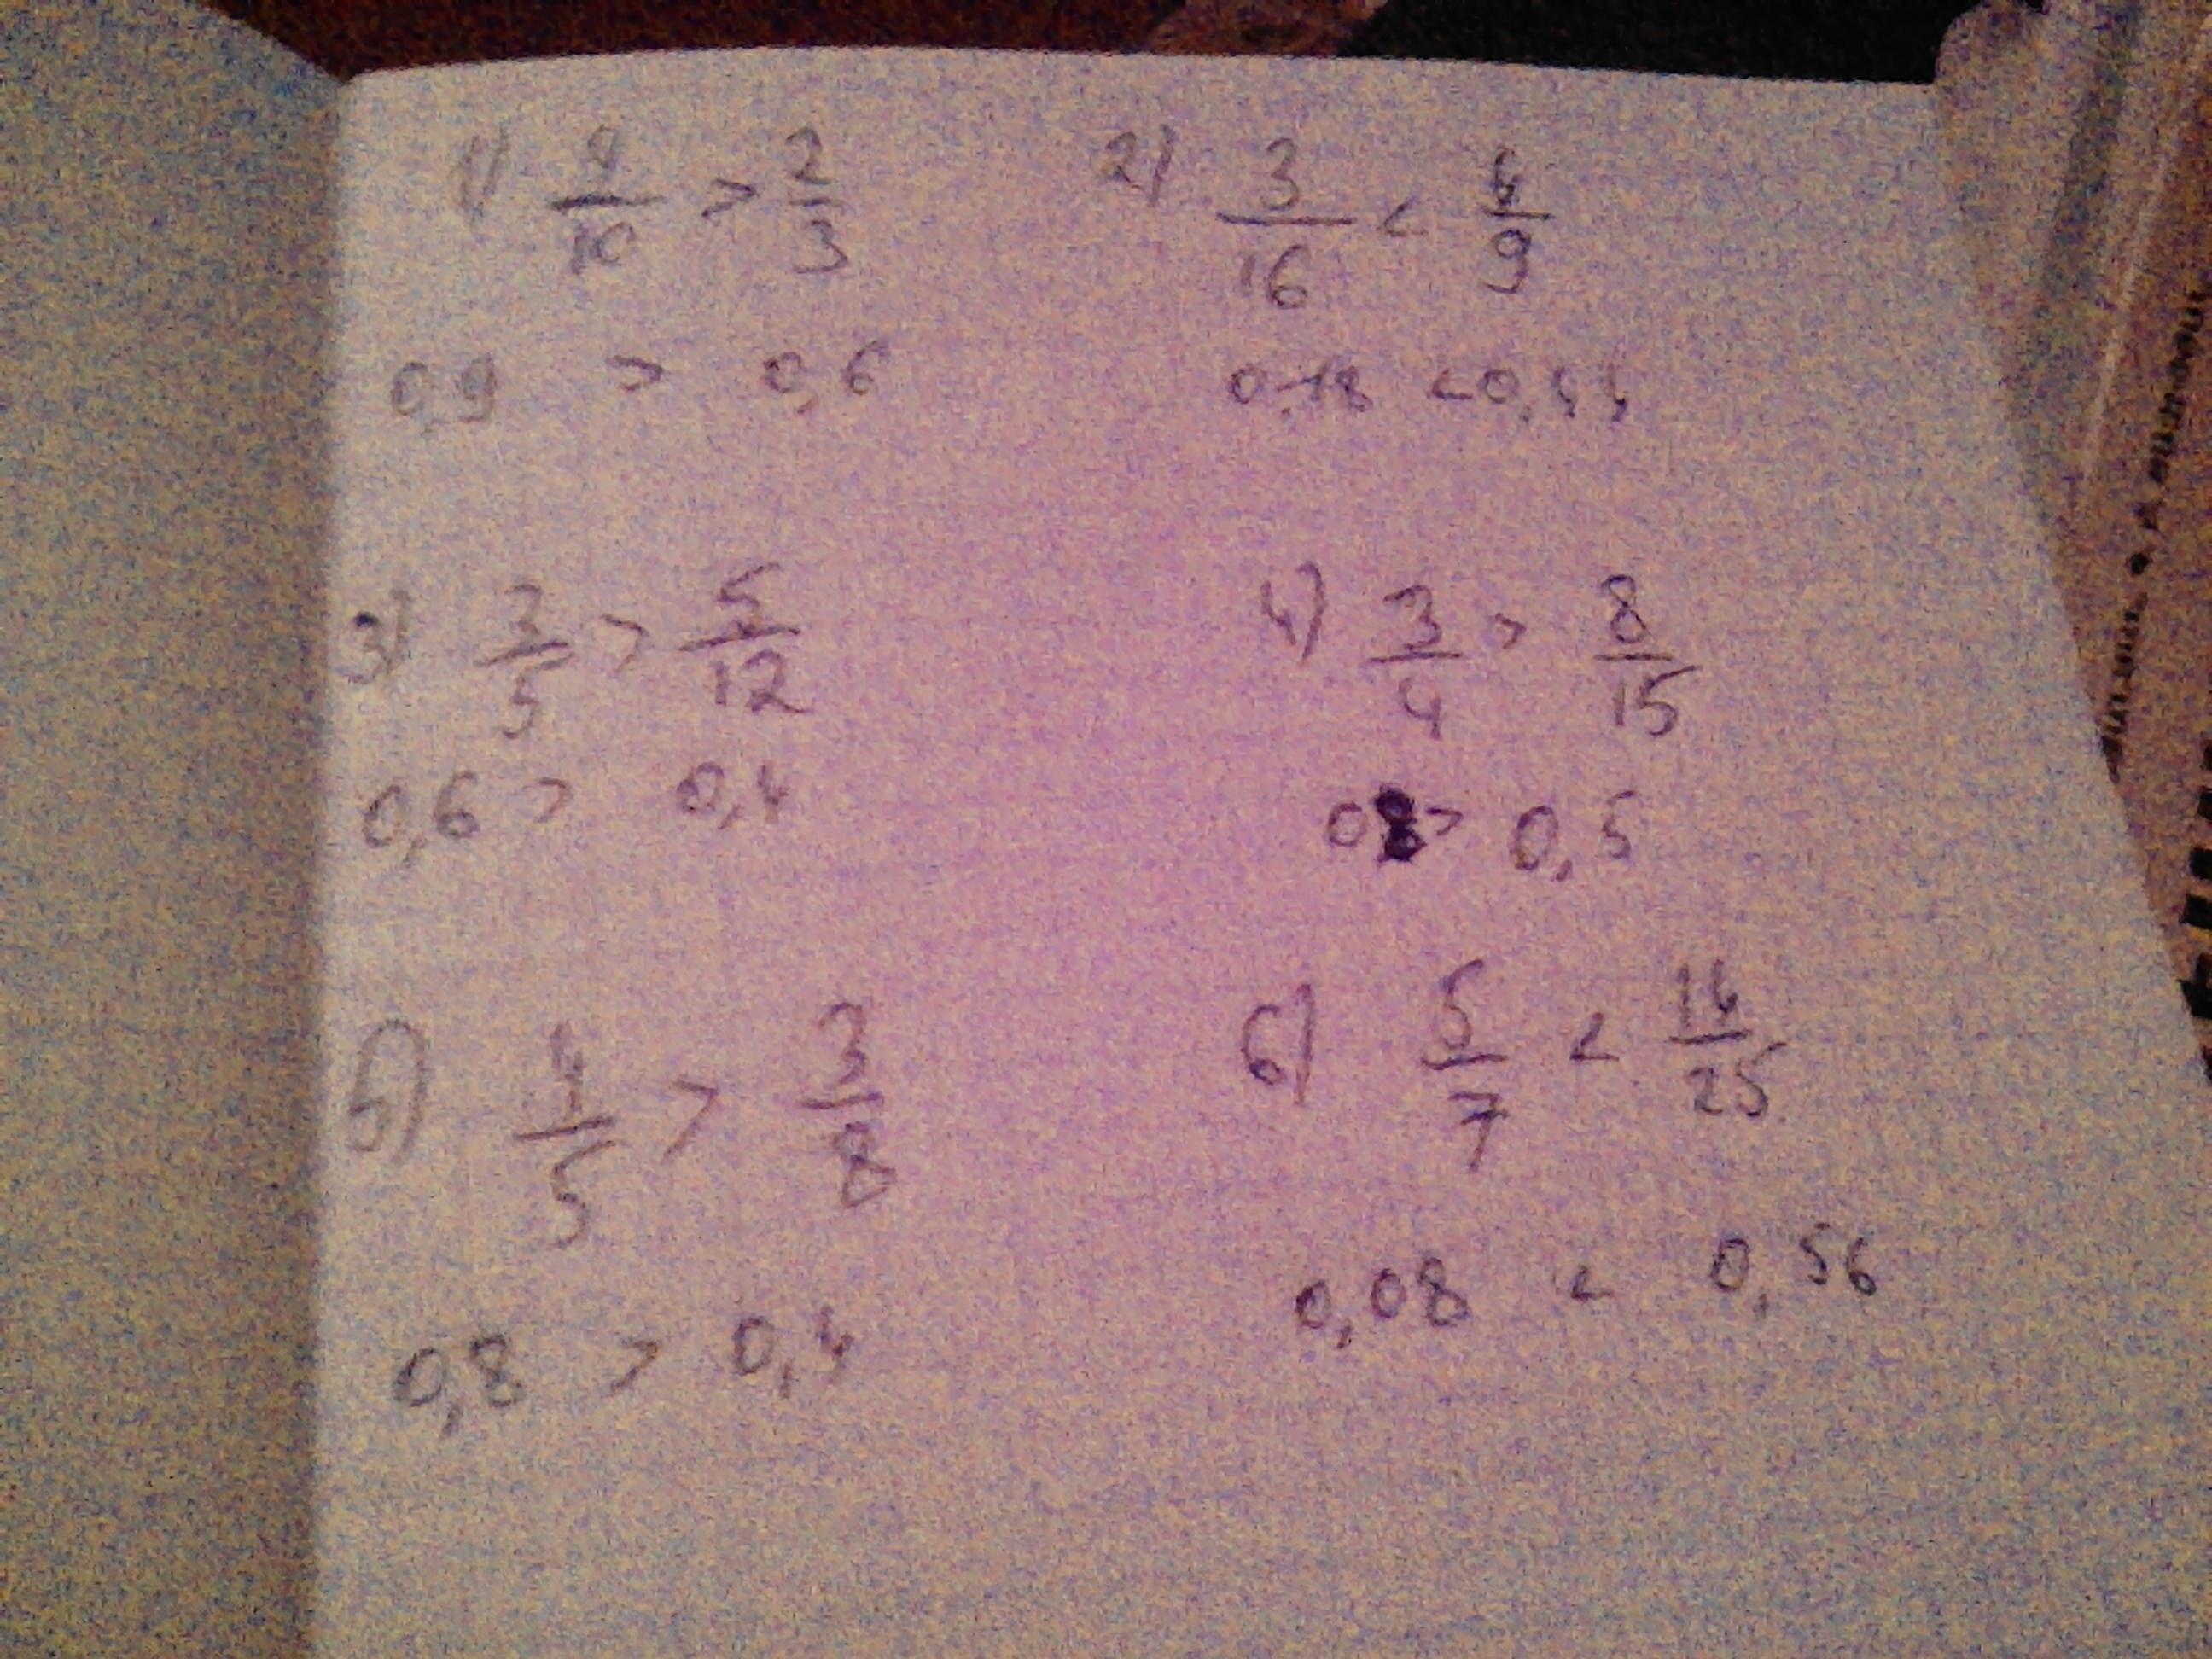 1) 9/10 > 2/3
0,9 > 0,6
2) 3/16 < 4/9
0,18 < 0,44
3) 3/5 > 5/12
0,6 > 0,4
4) 3/4 > 8/15
08 > 0,5
5) 4/5 > 3/8
0,8 > 0,4
6) 5/7 < 14/25
0,08 < 0,56